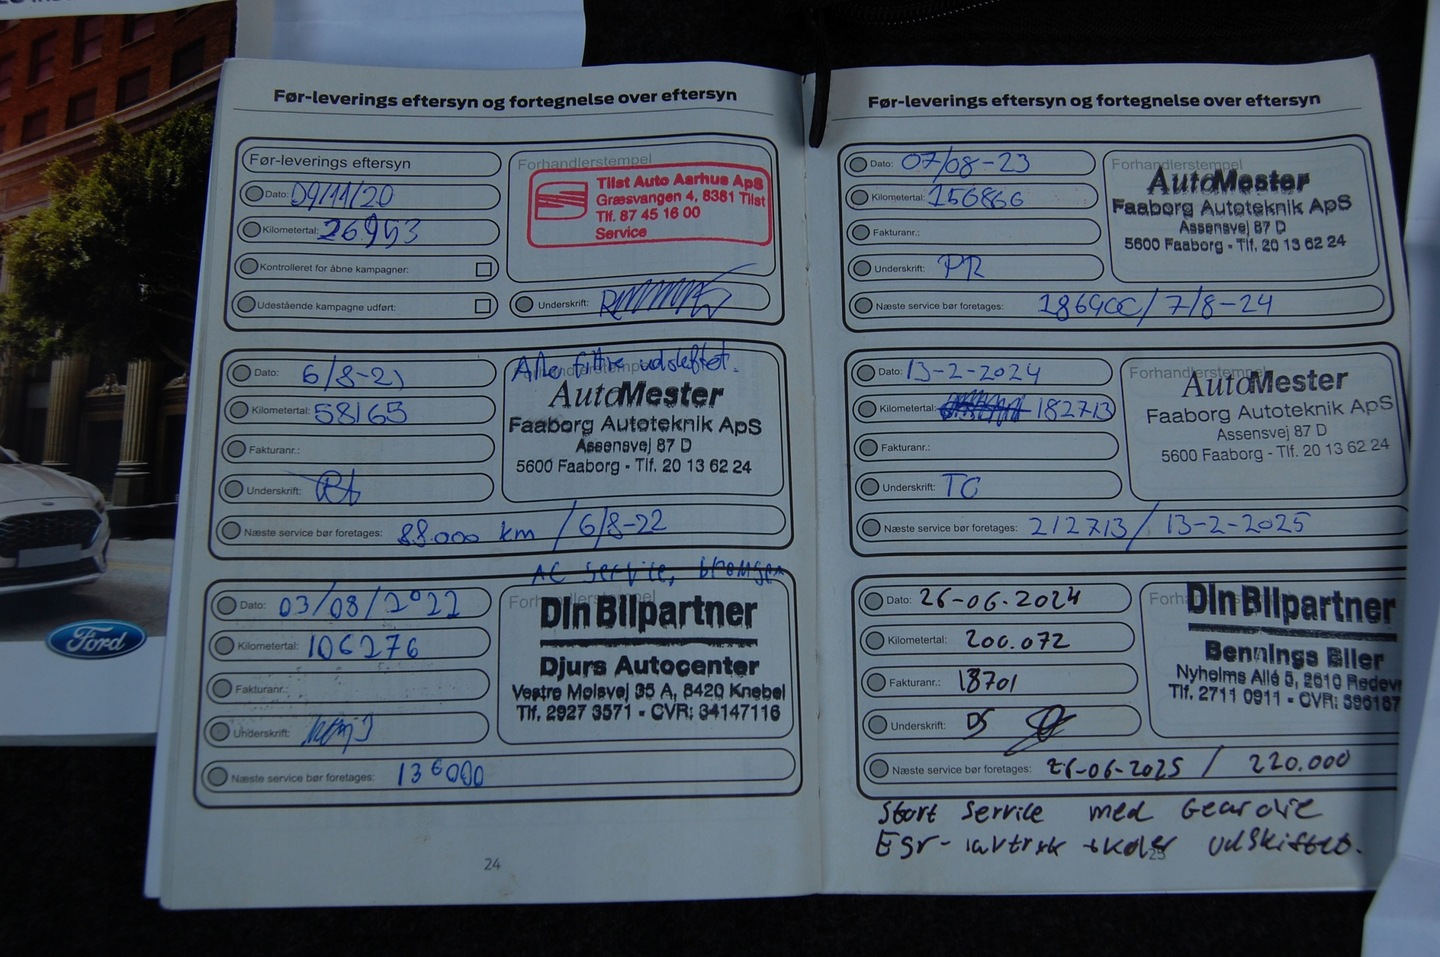 Før-leverings eftersyn og fortegnelse over eftersyn
Før-leverings eftersyn
Dato: 09/11/20
Kilometertal: 26953
Kontrolleret for åbne kampagner:
Udestående kampagne udført:
Forhandlerstempel
Tilst Auto Aarhus ApS
Græsvangen 4, 8381 Tilst
Tlf. 87 45 16 00
Service
Underskrift:
Dato: 6/8-21
Kilometertal: 58165
Fakturanr.:
Underskrift:
Næste service bør foretages: 88.000 km / 6/8-22
Alle filtre udskiftet.
Forhandlerstempel
AutoMester
Faaborg Autoteknik ApS
Assensvej 87 D
5600 Faaborg - Tlf. 20 13 62 24
Dato: 03/08/2022
Kilometertal: 106276
Fakturanr.:
Underskrift:
Næste service bør foretages: 136000
AC service, bremser
Forhandlerstempel
Din Bilpartner
Djurs Autocenter
Vestre Molsvej 35 A, 8420 Knebel
Tlf. 2927 3571 - CVR: 34147116
24
Før-leverings eftersyn og fortegnelse over eftersyn
Dato: 07/08-23
Kilometertal: 156866
Fakturanr.:
Underskrift: PR
Næste service bør foretages: 186900 / 7/8-24
Forhandlerstempel
AutoMester
Faaborg Autoteknik ApS
Assensvej 87 D
5600 Faaborg - Tlf. 20 13 62 24
Dato: 13-2-2024
Kilometertal: 182713
Fakturanr.:
Underskrift: TO
Næste service bør foretages: 212713 / 13-2-2025
Forhandlerstempel
AutoMester
Faaborg Autoteknik ApS
Assensvej 87 D
5600 Faaborg - Tlf. 20 13 62 24
Dato: 26-06.2024
Kilometertal: 200.072
Fakturanr.: 18701
Underskrift: DS
Næste service bør foretages: 26-06-2025 / 220.000
Din Bilpartner
Bennings Biler
Nyhelms Allé 5, 2610 Rødov
Tlf. 2711 0911 - CVR: 396187
Stort Service med Gearolie
Egr- udskiftet.
25
Ford